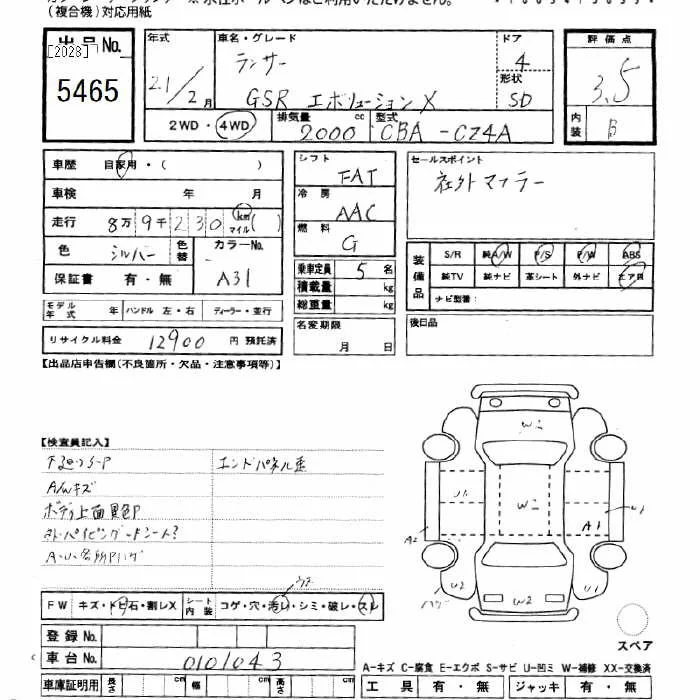 (複合機)対応用紙
出品No.
[2028]
5465
年式
21/2月
車名・グレード
ランサー
GSR エボリューションX
ドア
4
形状
SD
2WD・4WD
排気量
2000
cc
型式
CBA - CZ4A
評価点
3.5
内装
B
車歴 自家用・( )
車検 年 月
走行 8万9千230 km マイル( )
色 シルバー
色替
カラーNo.
A31
保証書 有・無
モデル年式 年
ハンドル 左・右
ディーラー・並行
リサイクル料金 12900 円 預託済
シフト
FAT
冷房
AAC
燃料
G
乗車定員 5 名
積載量 kg
総重量 kg
名変期限
月 日
セールスポイント
社外マフラー
装備品
S/R 純A/W P/S P/W ABS
純TV 純ナビ 革シート 外ナビ エアB
ナビ型番:
後日品
【出品店申告欄(不良箇所・欠品・注意事項等)】
【検査員記入】
エンドパネル歪
A/Wキズ
ボディ上面
W2
U1
W2
A1
U1
A2
U2
W2
U1
スペア
FW キズ・トビ石・割レX
シート内装 コゲ・穴・汚レ・シミ・破レ・スレ
登録No.
車台No. 0101043
車庫証明用 長さ cm 幅 cm 高さ cm
A-キズ C-腐食 E-エクボ S-サビ U-凹ミ W-補修 XX-交換済
工具 有・無 ジャッキ 有・無